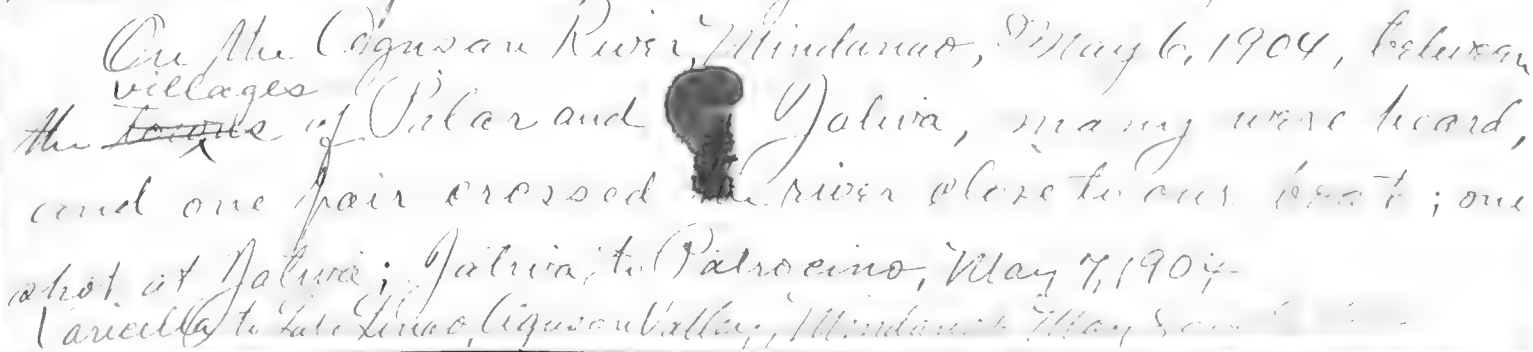 On the Agusan River, Mindanao, May 6, 1904, between
villages
the towns of Pilar and Jativa, many were heard,
and one pair crossed the river close to our boat; one
shot at Jativa; Jativa to Patrocino, May 7, 1904
to Lake Linao, Agusan Valley, Mindanao May